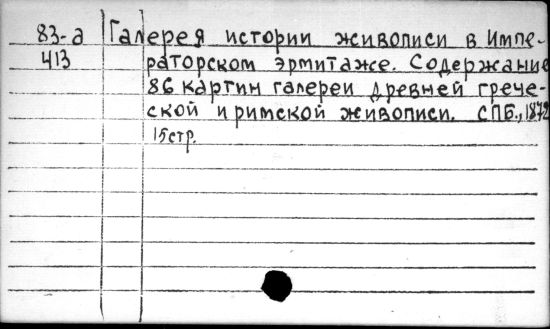 83-а Галерея истории живописи в Импе-
413 раторском эрмитаже. Содержание
86 картин галереи древней грече-
ской и римской живописи. СПБ., 1872
15 стр.